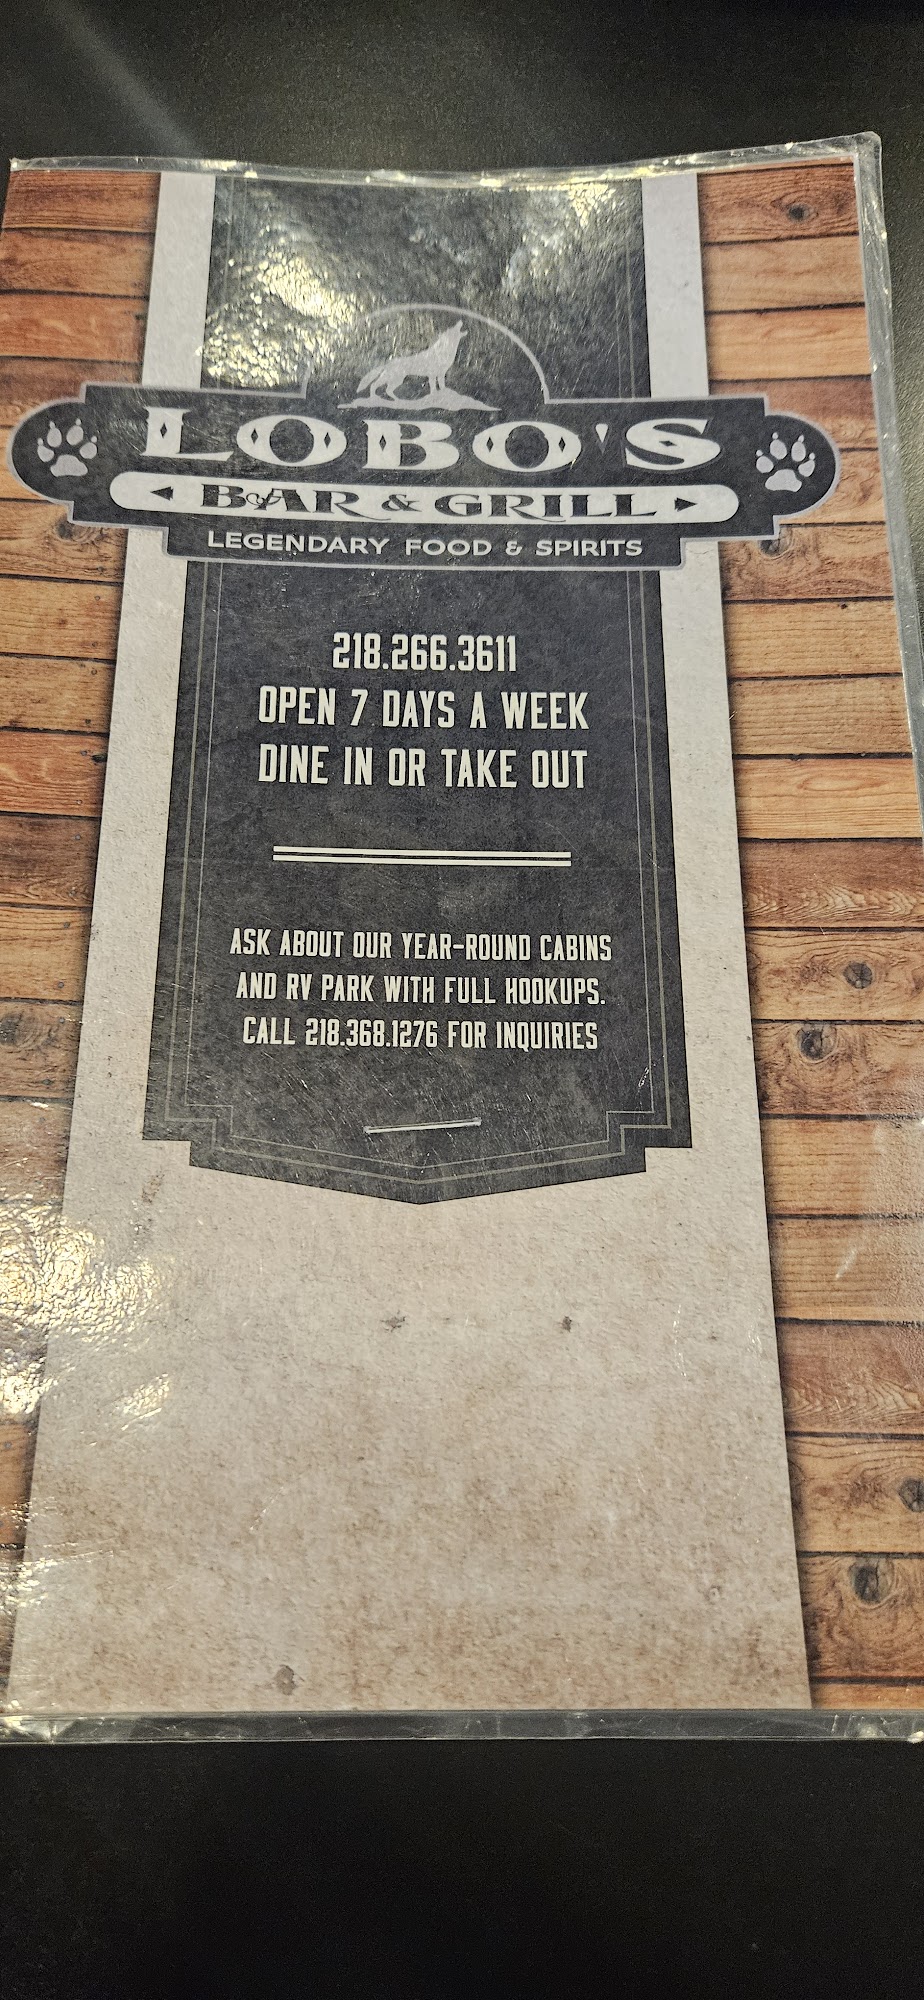 LOBO'S
BAR & GRILL
LEGENDARY FOOD & SPIRITS
218.266.3611
OPEN 7 DAYS A WEEK
DINE IN OR TAKE OUT
ASK ABOUT OUR YEAR-ROUND CABINS
AND RV PARK WITH FULL HOOKUPS.
CALL 218.368.1276 FOR INQUIRIES